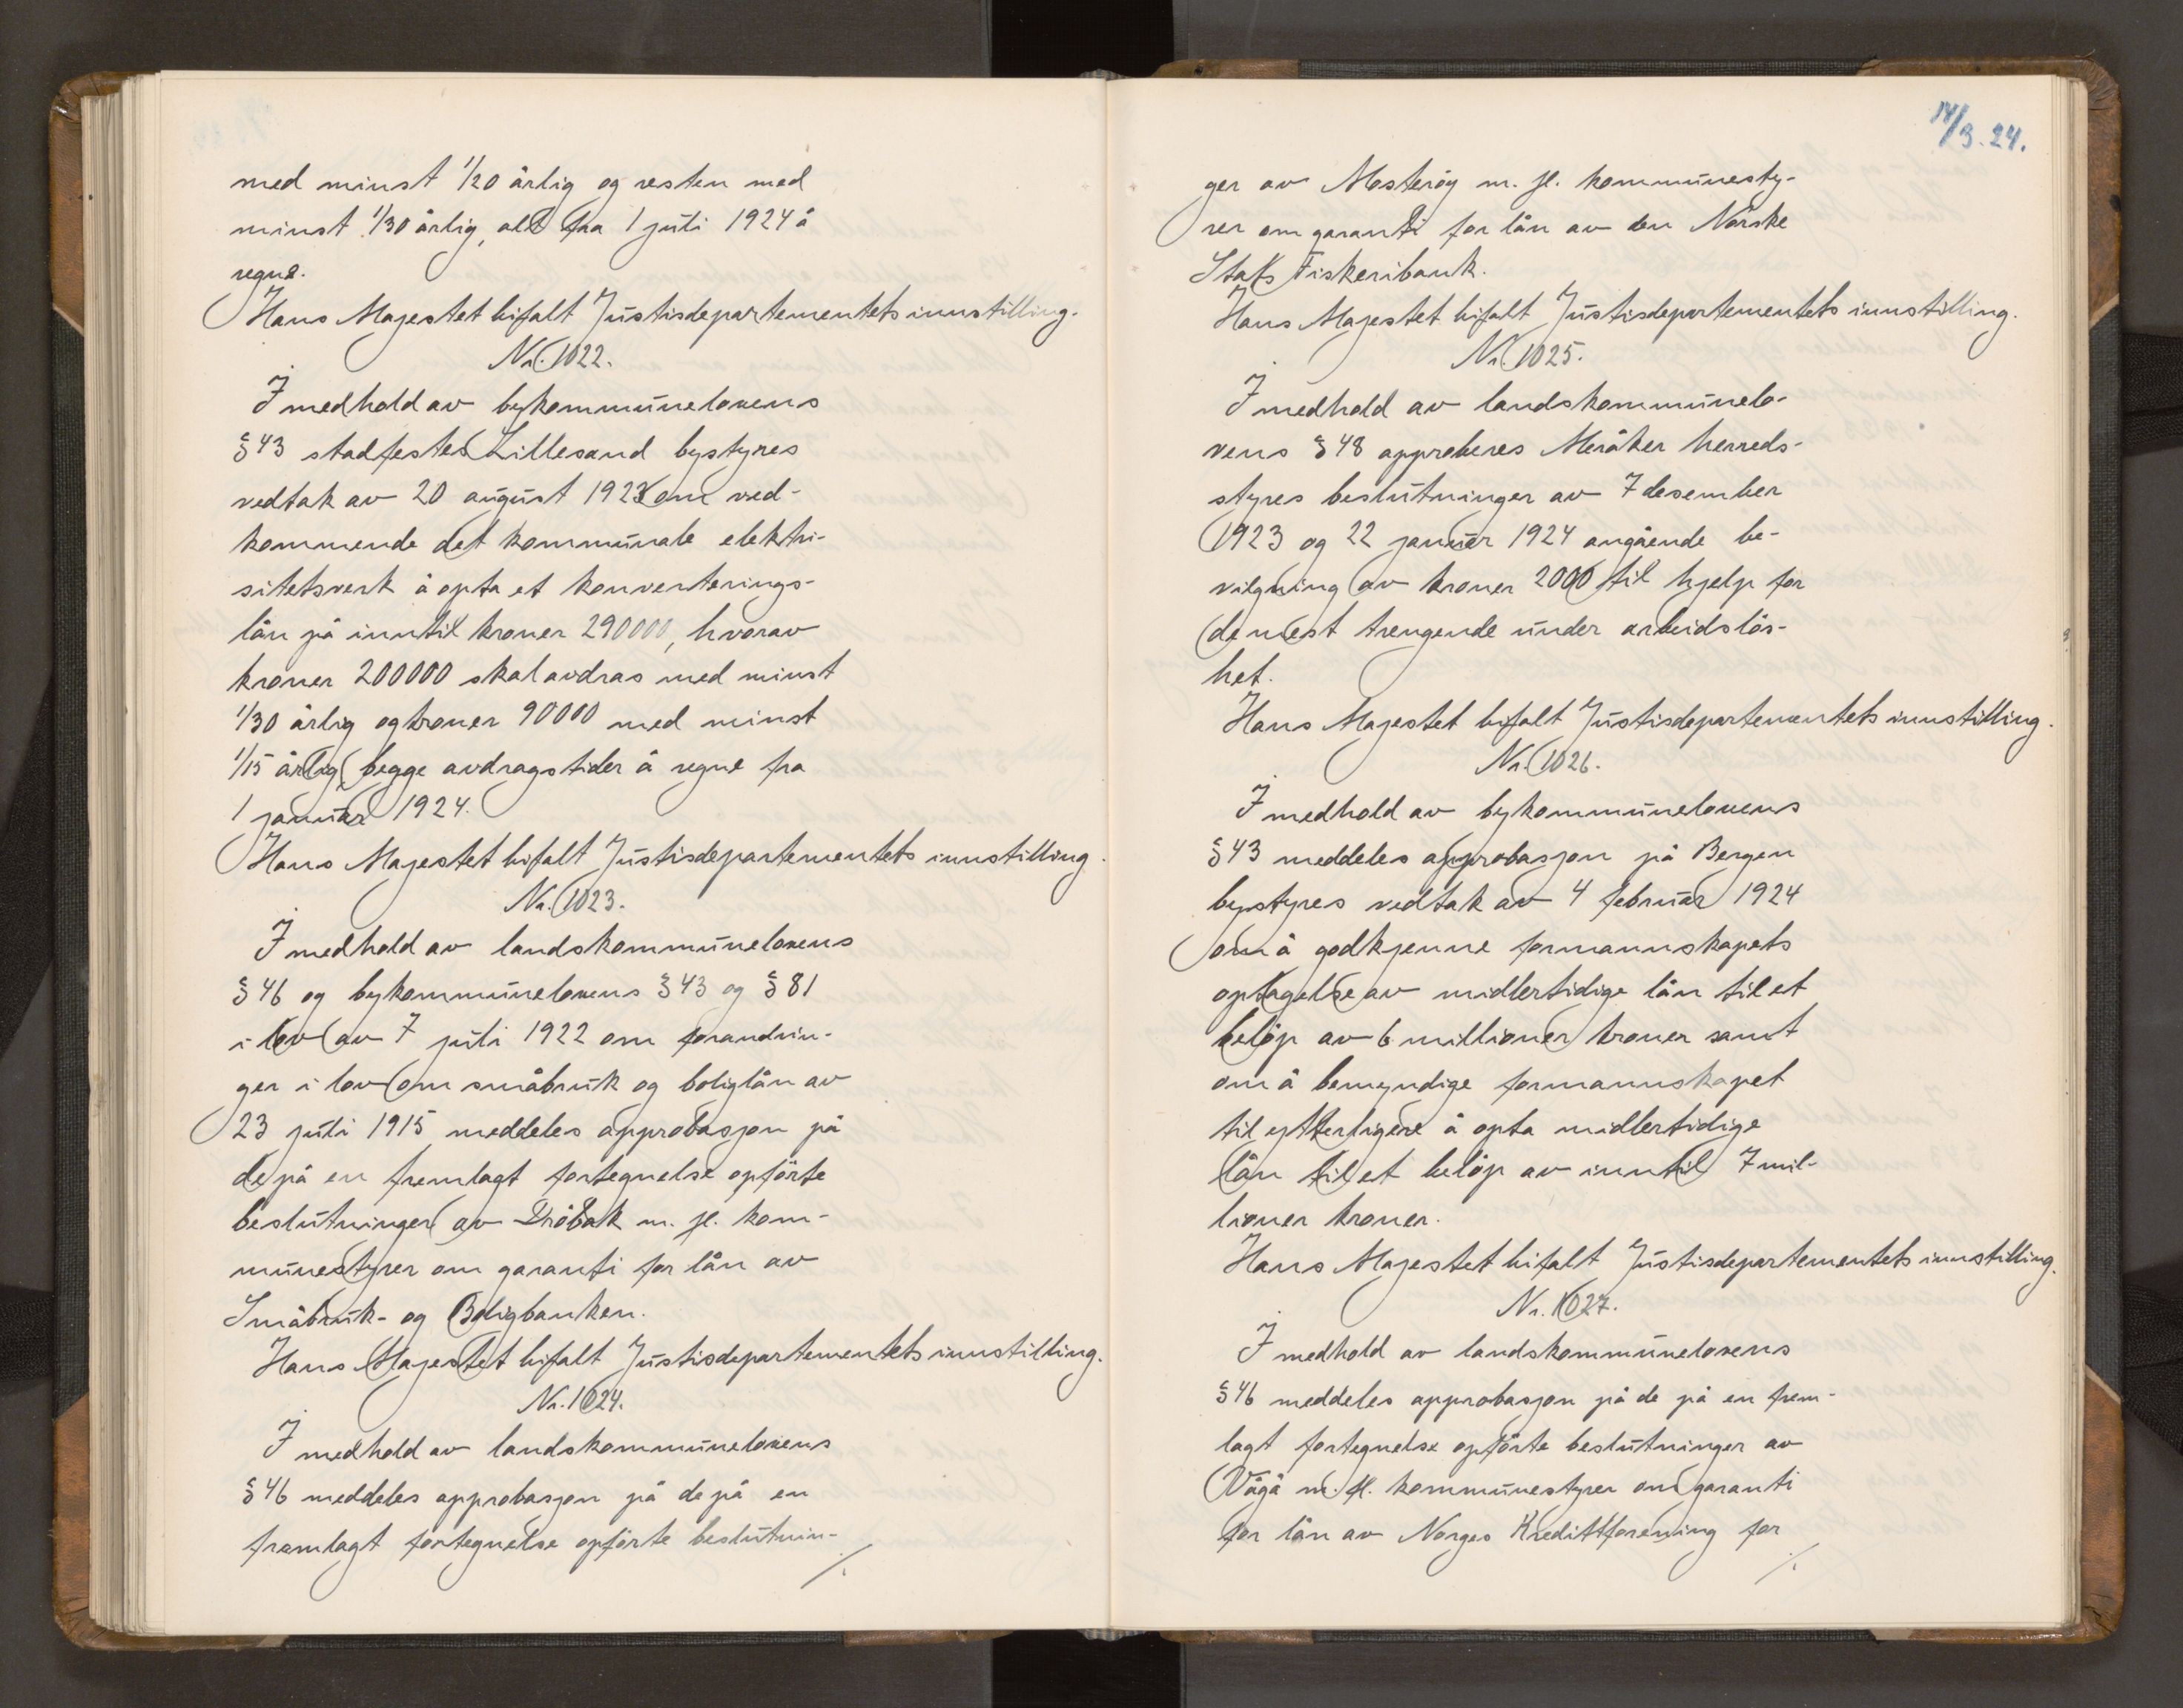 med minst 1/20 årlig og resten med
minst 1/30 årlig, alt fra 1 juli 1924 å
regne.
Hans Majestet bifalt Justisdepartementets innstilling.
Nr. 1022.
I medhold av bykommunelovens
§ 43 stadfestes Lillesand bystyres
vedtak av 20 august 1923 om ved-
kommende det kommunale elektri-
sitetsverk å opta et konverterings-
lån på inntil kroner 290000, hvorav
kroner 200000 skal avdras med minst
1/30 årlig og kroner 90000 med minst
1/15 årlig, begge avdragstider å regne fra
1 januar 1924.
Hans Majestet bifalt Justisdepartementets innstilling.
Nr. 1023.
I medhold av landskommunelovens
§ 46 og bykommunelovens § 43 og § 81
i lov av 7 juli 1922 om forandrin-
ger i lov om småbruk og boliglån av
23 juli 1915 meddeles approbasjon på
de på en fremlagt fortegnelse opförte
beslutninger av Dröbak m. fl. kom-
munestyrer om garanti for lån av
Småbruk- og Boligbanken.
Hans Majestet bifalt Justisdepartementets innstilling.
Nr. 1024.
I medhold av landskommunelovens
§ 46 meddeles approbasjon på de på en
fremlagt fortegnelse opförte beslutnin-
./.
14/3.24.
ger av Mosteröy m. fl. kommunesty-
rer om garanti for lån av den Norske
Stats Fiskeribank.
Hans Majestet bifalt Justisdepartementets innstilling.
Nr. 1025.
I medhold av landskommunelo-
vens § 48 approberes Meråker herreds-
styres beslutninger av 7 desember
1923 og 22 januar 1924 angående be-
vilgning av kroner 2000 til hjelp for
de mest trengende under arbeidslös-
het.
Hans Majestet bifalt Justisdepartementets innstilling.
Nr. 1026.
I medhold av bykommunelovens
§ 43 meddeles approbasjon på Bergen
bystyres vedtak av 4 februar 1924
om å godkjenne formannskapets
optagelse av midlertidige lån til et
belöp av 6 millioner kroner samt
om å bemyndige formannskapet
til ytterligere å opta midlertidige
lån til et belöp av inntil 7 mil-
lioner kroner.
Hans Majestet bifalt Justisdepartementets innstilling.
Nr. 1027.
I medhold av landskommunelovens
§ 46 meddeles approbasjon på de på en frem-
lagt fortegnelse opförte beslutninger av
Vågå m. fl. kommunestyrer om garanti
for lån av Norges Kredittforening for
./.